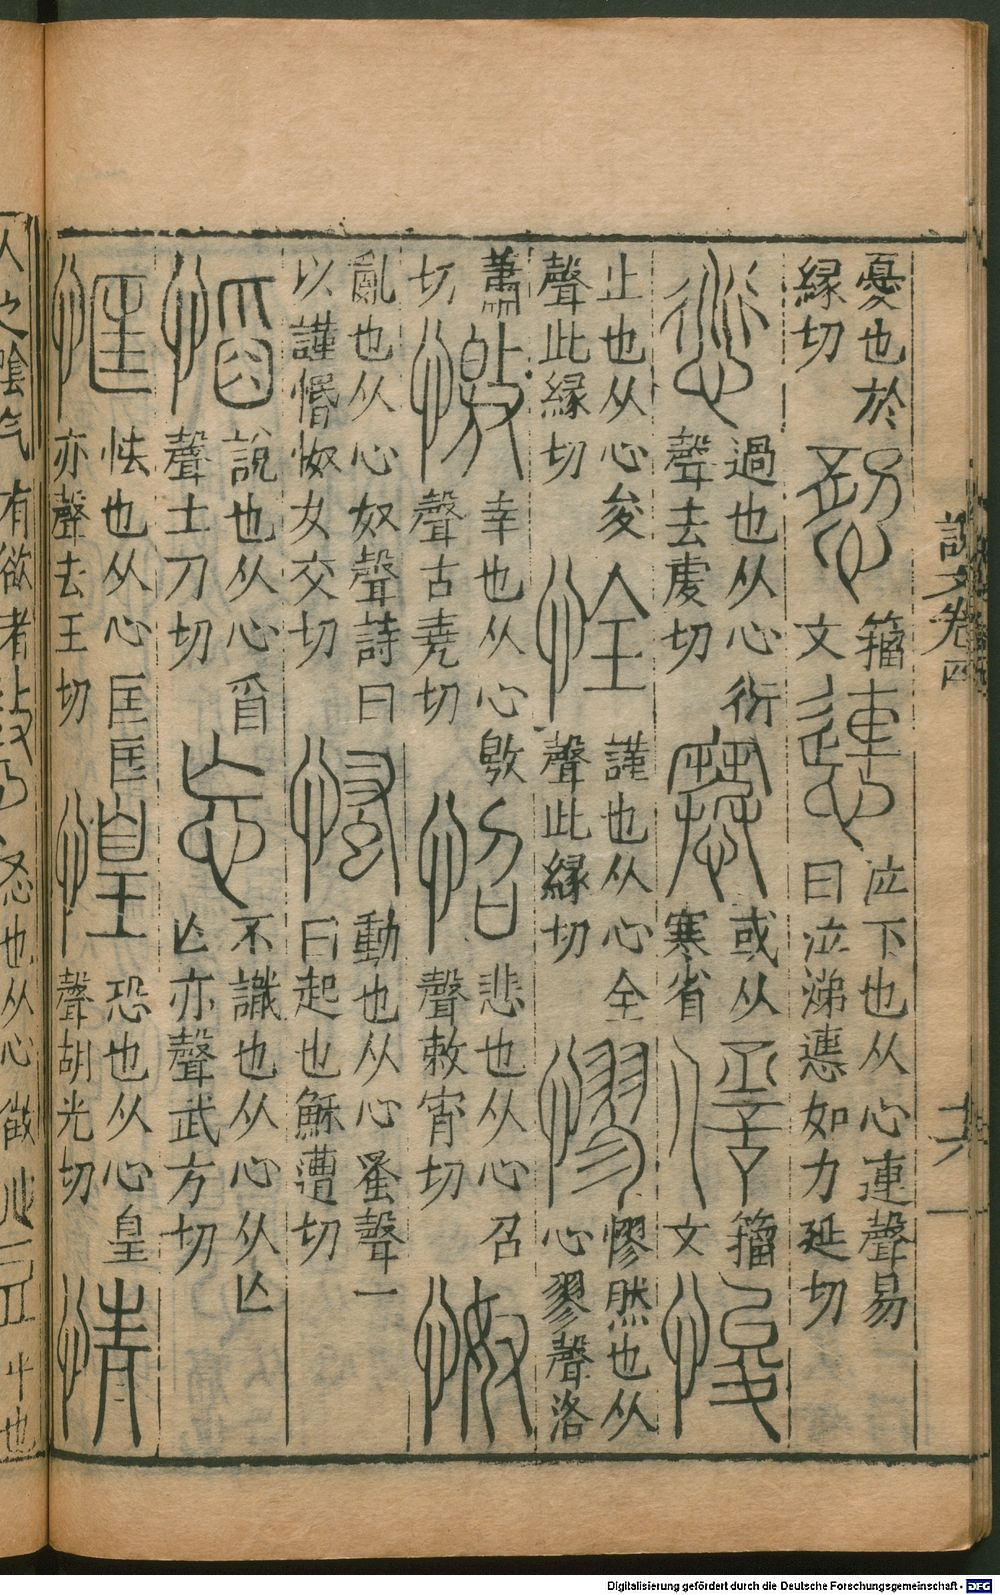 說文卷四
十六
憂也於緣切 籀文 慩 泣下也从心連聲易曰泣涕慩如力延切
愆 過也从心衍聲去虔切 或从寒省 籀文 悛
止也从心夋聲此緣切 恮 謹也从心全聲此緣切 憀 憀然也从心翏聲洛
蕭切 憿 幸也从心敫聲古堯切 怊 悲也从心召聲敕宵切 怓
亂也从心奴聲詩曰以謹惽怓女交切 慅 動也从心蚤聲一曰起也穌遭切
慆 說也从心舀聲土刀切 忘 不識也从心从亾亾亦聲武方切
恇 怯也从心匡匡亦聲去王切 惶 恐也从心皇聲胡光切 情
人之陰气有欲者
Digitalisierung gefördert durch die Deutsche Forschungsgemeinschaft - DFG